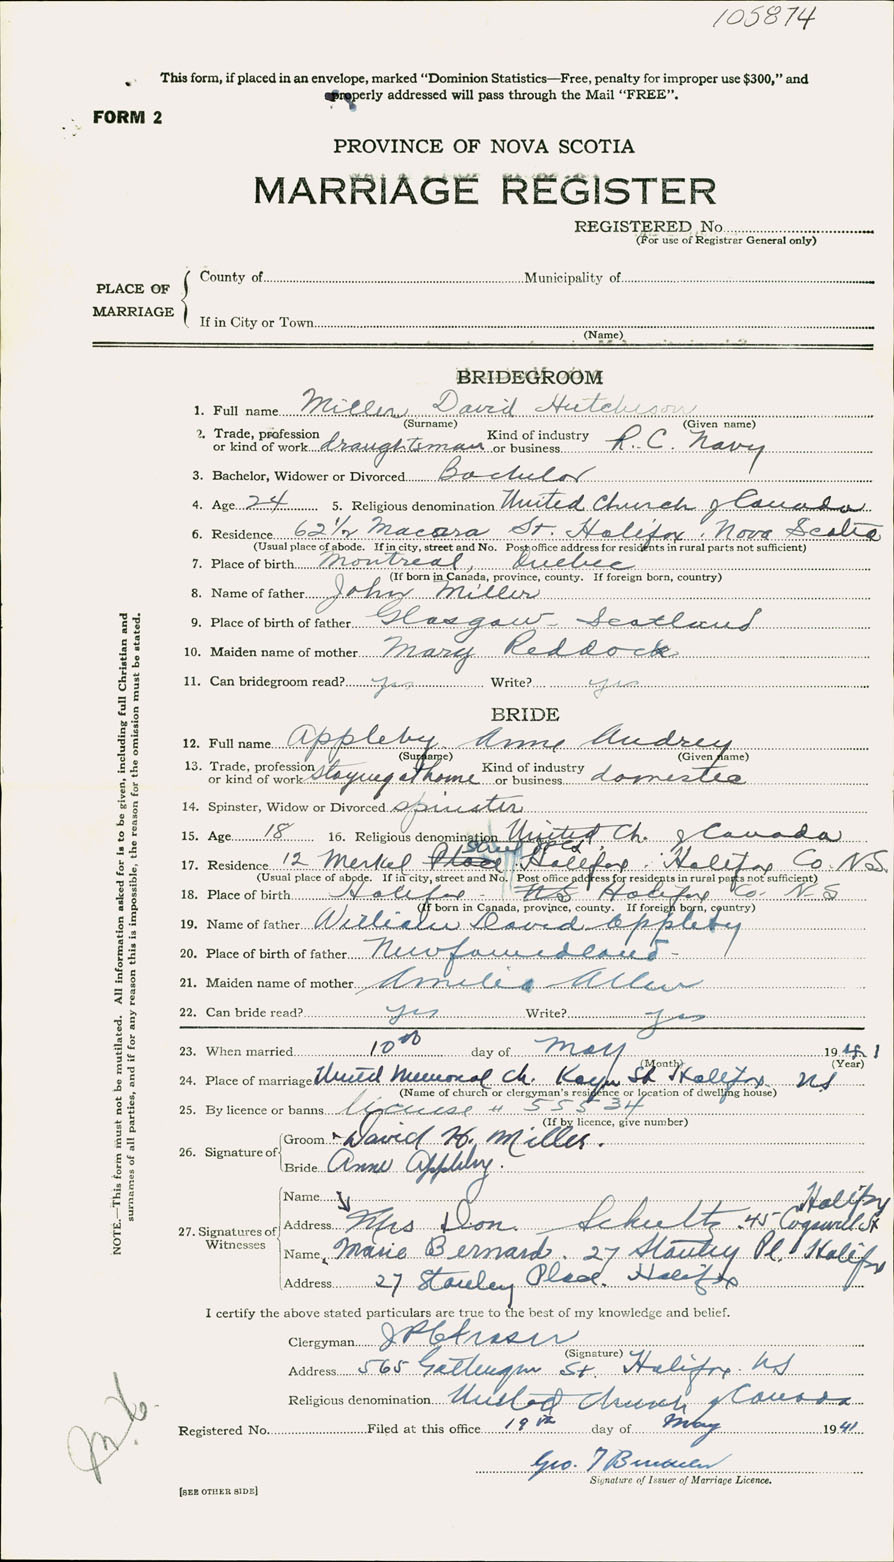 105874
This form, if placed in an envelope, marked “Dominion Statistics—Free, penalty for improper use $300,” and
properly addressed will pass through the Mail “FREE”.
FORM 2
PROVINCE OF NOVA SCOTIA
MARRIAGE REGISTER
REGISTERED No.
(For use of Registrar General only)
PLACE OF MARRIAGE
County of Municipality of
If in City or Town
(Name)
BRIDEGROOM
1. Full name Miller David Hutcheson
(Surname) (Given name)
2. Trade, profession or kind of work draughtsman Kind of industry or business R.C. Navy
3. Bachelor, Widower or Divorced Bachelor
4. Age 24 5. Religious denomination United Church of Canada
6. Residence 62½ Macara St. Halifax. Nova Scotia
(Usual place of abode. If in city, street and No. Post office address for residents in rural parts not sufficient)
7. Place of birth Montreal, Quebec
(If born in Canada, province, county. If foreign born, country)
8. Name of father John Miller
9. Place of birth of father Glasgow - Scotland
10. Maiden name of mother Mary Reddock
11. Can bridegroom read? yes Write? yes
BRIDE
12. Full name Appleby. Anne Audrey
(Surname) (Given name)
13. Trade, profession or kind of work staying at home Kind of industry or business domestic
14. Spinster, Widow or Divorced spinster
15. Age 18 16. Religious denomination United Ch. of Canada
17. Residence 12 Merkel Place Halifax. Halifax Co. N.S.
(Usual place of abode. If in city, street and No. Post office address for residents in rural parts not sufficient)
18. Place of birth Halifax - NS Halifax Co. N-S
(If born in Canada, province, county. If foreign born, country)
19. Name of father William David Appleby
20. Place of birth of father Newfoundland -
21. Maiden name of mother Amelia Allen
22. Can bride read? yes Write? yes
23. When married 10th day of May 1941
(Month) (Year)
24. Place of marriage United Memorial Ch. Kaye St Halifax NS
(Name of church or clergyman's residence or location of dwelling house)
25. By licence or banns license # 55534
(If by licence, give number)
26. Signature of
Groom David H. Miller.
Bride Anne Appleby.
27. Signatures of Witnesses
Name Halifax
Address Mrs Don. Schultz. 45 Cogswell St
Name Marie Bernard. 27 Stanley Pl. Halifax
Address 27 Stanley Place. Halifax
I certify the above stated particulars are true to the best of my knowledge and belief.
Clergyman
(Signature)
Address 565 St. Halifax NS
Religious denomination United Church of Canada
Registered No. Filed at this office 19th day of May 1941
Geo. T
Signature of Issuer of Marriage Licence.
[SEE OTHER SIDE]
NOTE.—This form must not be mutilated. All information asked for is to be given, including full Christian and
surnames of all parties, and if for any reason this is impossible, the reason for the omission must be stated.